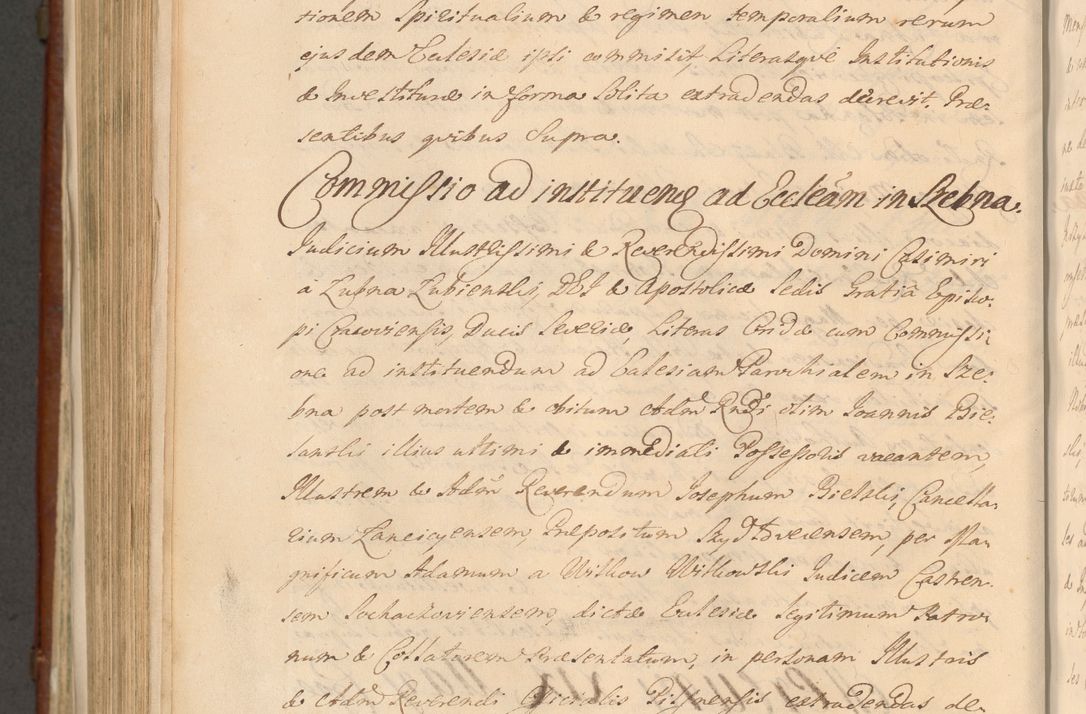 tionem Spiritualium & regimen temporalium rerum
ejusdem Ecclesiæ ipsi commisit, Literasque Institutionis
& Investituræ in forma solita extradendas decrevit. Præ-
sentibus quibus supra.
Commissio ad instituend ad Eccleam in Szebna.
Judicium Illustrissimi & Reverendissimi Domini Casimiri
a Łubna Łubienski, DEI & Apostolicæ Sedis Gratia Episco-
pi Cracoviensis, Ducis Severiæ, Literas cum Commissi-
one ad instituendum ad Ecclesiam Parochialem in Sze-
bna post mortem & obitum Adm Rndi olim Joannis Bie-
lanski illius ultimi & immediati Possessoris vacantem,
Illustrem & Adm Reverendum Josephum Bielski, Cancella-
rium Lanciciensem, Præpositum per Ma-
gnificum Adamum a Witkow Witkowski Judicem Castren-
sem Sochachoviensem, dictæ Ecclesiæ legitimum Patro-
num & Collatorem Præsentatum, in personam Illustris
& Adm Reverendi Officialis Pilsnensis extradendas de-